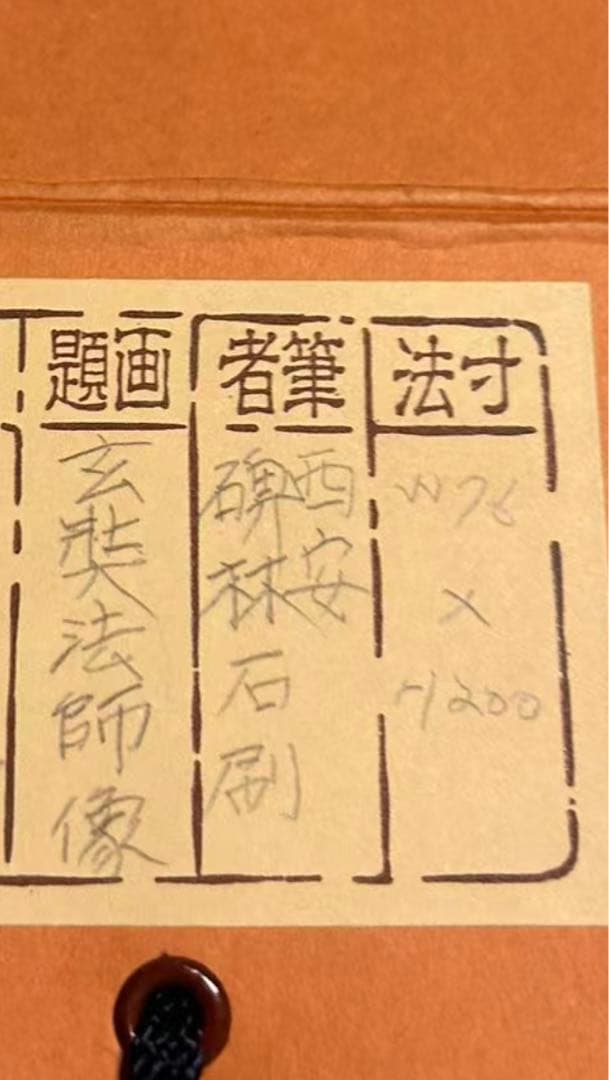 寸法
W76
×
H200
筆者
西安
碑林
石刷
画題
玄奘法師像